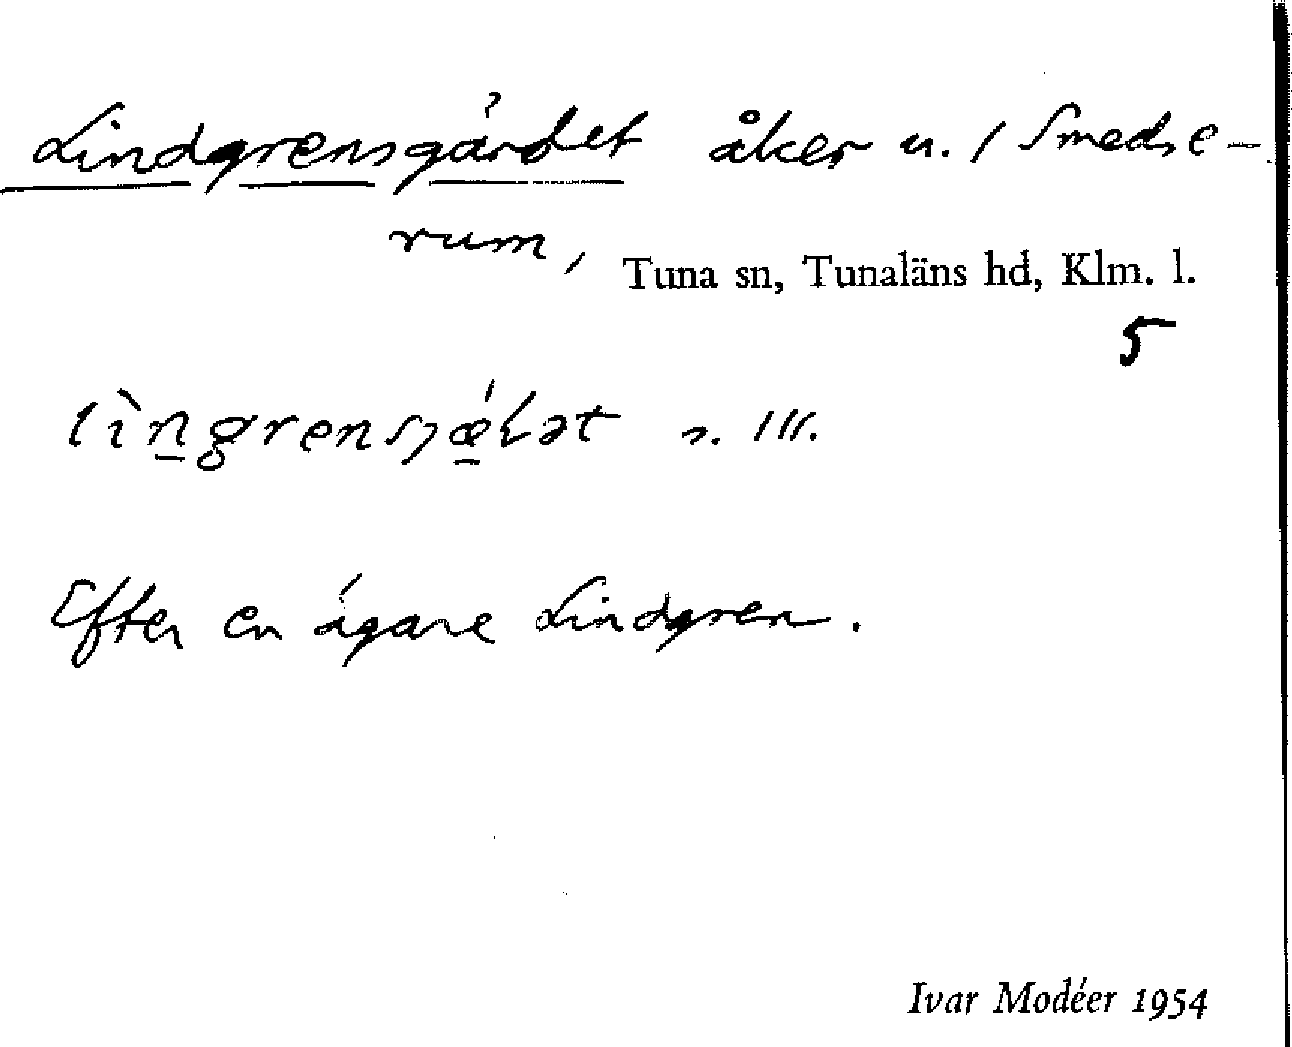 Lindgrensgärdet åker u. / Smedse-
rum, Tuna sn, Tunaläns hd, Klm. l.
5
Efter en ägare Lindgren.
Ivar Modéer 1954